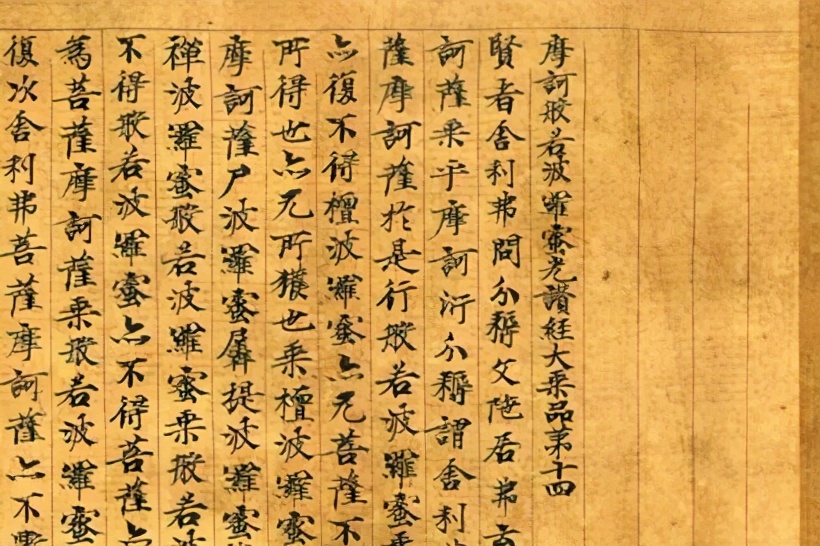 摩訶般若波羅蜜光讃經大乘品第十四
賢者舍利弗問分耨文陁尼弗
訶薩乘乎摩訶衍分耨謂舍利
薩摩訶薩於是行般若波羅蜜
亦復不得檀波羅蜜亦无菩薩不
所得也亦无所獲也乘檀波羅蜜
摩訶薩尸波羅蜜羼提波羅蜜
禪波羅蜜般若波羅蜜乘般若波
不得般若波羅蜜亦不得菩薩亦
為菩薩摩訶薩乘般若波羅蜜
復次舍利弗菩薩摩訶薩亦不